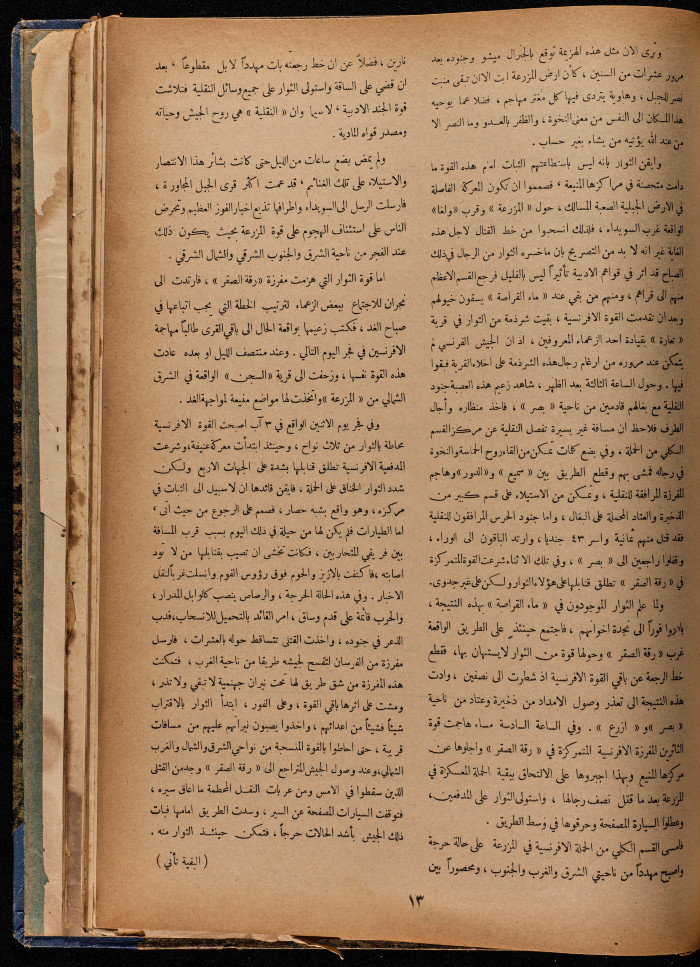 وترى الان مثل هذه الهزيمة توقع بالجنرال ميشو وجنوده بعد
مرور عشرات من السنين ، كأن ارض المزرعة ابت الا ان تبقى منبت
نصر للجبل ، وهاوية يتردى فيها كل مغتر مهاجم ، فضلا عما يوحيه
هذا المكان الى النفس من معنى النخوة ، والظفر بالعدو وما النصر الا
من عند الله يؤتيه من يشاء بغير حساب .
وايقن الثوار بانه ليس باستطاعتهم الثبات امام هذه القوة ما
دامت متحصنة في مراكزها المنيعة ، فصمموا ان تكون المعركة الفاصلة
في الارض الجبلية الصعبة المسالك ، حول « المزرعة » وقرب « ولغا »
الواقعة غرب السويداء ، فلذلك انسحبوا من خط القتال لاجل هذه
الغاية غير انه لا بد من التصريح بان ماخسره الثوار من الرجال في ذلك
الصباح قد اثر في قواهم الادبية تأثيراً ليس بالقليل فرجع القسم الاعظم
منهم الى قراهم ، ومنهم من بقي عند « ماء القراصة » يسقون خيولهم
وبعد ان تقدمت القوة الافرنسية ، بقيت شرذمة من الثوار في قرية
بقيادة احد الزعماء المعروفين ، اذ ان الجيش الفرنسي لم
يتمكن عند مروره من ارغام رجال هذه الشرذمة على اخلاء القرية فبقوا
فيها . وحول الساعة الثالثة بعد الظهر ، شاهد زعيم هذه العصبة جنود
النقلية مع بغالهم قادمين من ناحية « بصر » ، فاخذ منظاره وأجال
الطرف فلاحظ ان مسافة غير يسيرة تفصل النقلية عن مركز القسم
الكلي من الحملة ، وفي بضع كلمات تمكن من القاء روح الحماسة والنخوة
في رجاله فمشى بهم وقطع الطريق بين « سميع » و«الدور» وهاجم
المفرزة المرافقة للنقلية ، وتمكن من الاستيلاء على قسم كبير من
الذخيرة والعتاد المحملة على البغال ، واما جنود الحرس المرافقون للنقلية
فقد قتل منهم ثمانية واسر ٤٣ جنديا ، وارتد الباقون الى الوراء ،
وقفلوا راجعين الى « بصر » ، وفي تلك الاثناء شرعت القوة المتمركزة
في « رقة الصقر » تطلق قنابلها على هؤلاء الثوار ولكن على غير جدوى.
ولما علم الثوار الموجودون في « ماء القراصة » بهذه النتيجة ،
بادروا فوراً الى نجدة اخوانهم ، فاجتمع حينئذ على الطريق الواقعة
غرب « رقة الصقر » وحولها قوة من الثوار لا يستهان بها ، فقطع
خط الرجعة عن باقي القوة الافرنسية اذ شطرت الى نصفين ، وادت
هذه النتيجة الى تعذر وصول الامداد من ذخيرة وعتاد من ناحية
« بصر » و « ازرع » . وفي الساعة السادسة مساء هاجمت قوة
الثائرين المفرزة الافرنسية المتمركزة في « رقة الصقر » واجلوها عن
مركزها المنيع وبهذا اجبروها على الالتحاق ببقية الحملة المعسكرة في
المزرعة بعد ما قتل نصف رجالها ، واستولى الثوار على المدفعين ،
وعطلوا السيارة المصفحة وحرقوها في وسط الطريق .
فامسى القسم الكلي من الحملة الافرنسية في المزرعة على حالة حرجة
واصبح مهدداً من ناحيتي الشرق والغرب والجنوب ، ومحصوراً بين
نارين ، فضلاً عن ان خط رجعته بات مهدداً لا بل مقطوعا ، بعد
ان قضي على الساقة واستولى الثوار على جميع وسائل النقلية فتلاشت
قوة الجند الادبية ، لاسيما وان « النقلية » هي روح الجيش وحياته
ومصدر قواه المادية .
ولم يمض بضع ساعات من الليل حتى كانت بشائر هذا الانتصار
والاستيلاء على تلك الغنائم ، قد عمت اكثر قرى الجبل المجاورة ،
فارسلت الرسل الى السويداء واطرافها تذيع اخبار الفوز العظيم وتحرض
الناس على استئناف الهجوم على قوة المزرعة بحيث يكون ذلك
عند الفجر من ناحية الشرق والجنوب الشرقي والشمال الشرقي .
اما قوة الثوار التي هزمت مفرزة «رقة الصقر » ، فارتدت الى
نجران للاجتماع ببعض الزعماء لترتيب الخطة التي يجب اتباعها في
صباح الغد ، فكتب زعيمها بواقعة الحال الى باقي القرى طالباً مهاجمة
الافرنسين في فجر اليوم التالي . وعند منتصف الليل او بعده عادت
هذه القوة نفسها ، وزحفت الى قرية «السجن» الواقعة في الشرق
الشمالي من « المزرعة » واتخذت لها مواضع منيعة لمواجهة الغد .
وفي فجر يوم الاثنين الواقع في ٣ آب اصبحت القوة الافرنسية
محاطة بالثوار من ثلاث نواح ، وحينئذ ابتدأت معركة عنيفة ، وشرعت
المدفعية الافرنسية تطلق قنابلها بشدة على الجهات الاربع ولكن
شدد الثوار الخناق على الحملة ، فايقن قائدها ان لاسبيل الى الثبات في
مركزه ، وهو واقع بشبه حصار ، فصمم على الرجوع من حيث أتى ،
اما الطيارات فلم يكن لها من حيلة في ذلك اليوم بسبب قرب المسافة
بين فريقي المتحاربين ، فكانت تخشى ان تصيب بقنابلها من لا تود
اصابته ، فاكتفت بالازيز والحوم فوق رؤوس القوم وانسلت غرباً لنقل
الاخبار . وفي هذه الحالة الحرجة ، والرصاص ينصب كالوابل المدرار ،
والحرب قائمة على قدم وساق ، امر القائد بالتحميل للانسحاب ، فدب
الذعر في جنوده ، واخذت القتلى تتساقط حوله بالعشرات ، فارسل
مفرزة من الفرسان لتفسح لجيشه طريقا من ناحية الغرب ، فتمكنت
هذه المفرزة من شق طريق لها تحت نيران جهنمية لا تبقي ولا تذر ،
ومشت على اثرها باقي القوة ، وعلى الفور ، ابتدأ الثوار بالاقتراب
شيئاً فشيئاً من اعدائهم ، واخذوا يصبون نيرانهم عليهم من مسافات
قريبة ، حتى احاطوا بالقوة المنسحبة من نواحي الشرق والشمال والغرب
الشمالي ، وعند وصول الجيش المتراجع الى « رقة الصقر » وجد من القتلى
الذين سقطوا في الامس ومن عربات النقل المحطمة ما اعاق سيره ،
فتوقفت السيارات المصفحة عن السير ، وسدت الطريق امامها فبات
ذلك الجيش بأشد الحالات حرجاً ، فتمكن حينئذ الثوار منه .
( البقية تأتي )
١٣